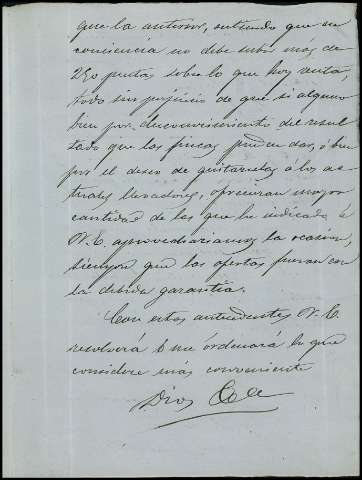 que la anterior, entiendo que en
conciencia no debe subir más de
250 pesetas sobre lo que hoy renta,
todo sin perjuicio de que si alguno
bien por desconocimiento del resul-
tado que las fincas pueden dar, ó bien
por el deseo de quitarselas á los ac-
tuales llevadores, ofrecieran mayor
cantidad de las que he indicado á
V. E. aprovechariamos la ocasion,
siempre que las ofertas fueran con
la debida garantia.
Con estos antecedentes V. E.
resolverá ó me ordenará lo que
considere más conveniente
Dios